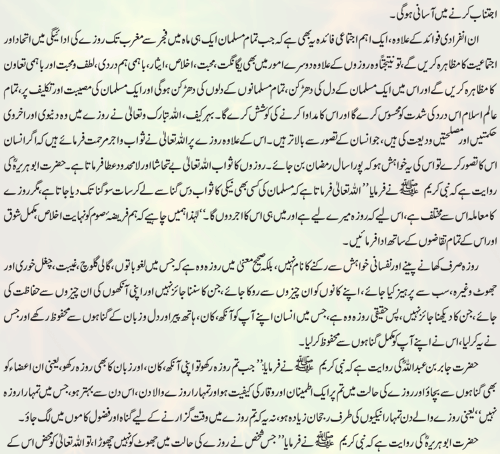 اجتناب کرنے میں آسانی ہوگی۔
ان انفرادی فوائد کے علاوہ، ایک اہم اجتماعی فائدہ یہ بھی ہے کہ جب تمام مسلمان ایک ہی ماہ میں فجر سے مغرب تک روزے کی ادائیگی میں اتحاد اور
اجتماعیت کا مظاہرہ کریں گے، تو نتیجتاً وہ روزوں کے علاوہ دوسرے امور میں بھی یگانگت، محبت، اخلاص، ایثار، باہمی ہم دردی، لطف و محبت اور باہمی تعاون
کا مظاہرہ کریں گے اور اس میں ایک مسلمان کے دل کی دھڑکن، تمام مسلمانوں کے دلوں کی دھڑکن ہوگی اور ایک مسلمان کی مصیبت اور تکلیف پر، تمام
عالم اسلام اس درد کی شدت کو محسوس کرے گا۔ اور اس کا مداوا کرنے کی کوشش کرے گا۔ بہرکیف، اللہ تبارک وتعالیٰ نے روزے میں وہ دنیوی اور اخروی
حکمتیں اور مصلحتیں ودیعت کی ہیں، جو انسان کے تصور سے بالاتر ہیں۔ اس کے علاوہ روزے پر اللہ تعالیٰ نے ثواب و اجر مرحمت فرمائے ہیں کہ اگر انسان
اس کا تصور کرے تو اس کی یہ خواہش ہو کہ پورا سال رمضان بن جائے۔ روزوں کا ثواب اللہ تعالیٰ بے تحاشا اور لامحدود عطا فرماتا ہے۔ حضرت ابو ہریرہؓ کی
روایت ہے کہ نبی کریم ﷺ نے فرمایا ’’اللہ تعالیٰ فرماتا ہے کہ مسلمان کی کسی بھی نیکی کا ثواب دس گنا سے لے کر سات سو گنا تک دیا جاتا ہے، مگر روزے
کا معاملہ اس سے مختلف ہے، اس لیے کہ روزہ میرے لیے ہے اور میں ہی اس کا اجر دوں گا۔‘‘ لہٰذا ہمیں چاہیے کہ ہم فریضۂ صوم کو نہایت اخلاص، مکمل شوق
اور اس کے تمام تقاضوں کے ساتھ ادا فرمائیں۔
روزہ صرف کھانے پینے اور نفسانی خواہش سے رکنے کا نام نہیں، بلکہ صحیح معنیٰ میں روزہ وہ ہے کہ جس میں لغو باتوں، گالی گلوچ، غیبت، چغل خوری اور
جھوٹ وغیرہ، سب سے پرہیز کیا جائے، اپنے کانوں کو ان چیزوں سے روکا جائے، جن کا سننا جائز نہیں اور اپنی آنکھوں کی ان چیزوں سے حفاظت کی
جائے، جن کا دیکھنا جائز نہیں، پس حقیقی روزہ وہ ہے، جس میں انسان اپنے آپ کو آنکھ، کان، ہاتھ پیر اور دل و زبان کے گناہوں سے محفوظ رکھے اور جس
نے یہ کر لیا، اس نے اپنے آپ کو مکمل گناہوں سے محفوظ کر لیا۔
حضرت جابر بن عبداللہؓ کی روایت ہے کہ نبی کریم ﷺ نے فرمایا ’’جب تم روزہ رکھو تو اپنی آنکھ، کان، اور زبان کا بھی روزہ رکھو، یعنی ان اعضاء کو
بھی گناہوں سے بچاؤ اور روزے کی حالت میں تم پر ایک اطمینان اور وقار کی کیفیت ہو اور تمہارا روزے والا دن، اس دن سے بہتر ہو، جس میں تمہارا روزہ
نہیں‘‘ یعنی روزے والے دن تمہارا نیکیوں کی طرف رجحان زیادہ ہو، نہ یہ کہ تم روزے میں وقت گزارنے کے لیے گناہ اور فضول کاموں میں لگ جاؤ۔
حضرت ابو ہریرہؓ کی روایت ہے کہ نبی کریم ﷺ نے فرمایا ’’جس شخص نے روزے کی حالت میں جھوٹ کو نہیں چھوڑا، تو اللہ تعالیٰ کو محض اس کے